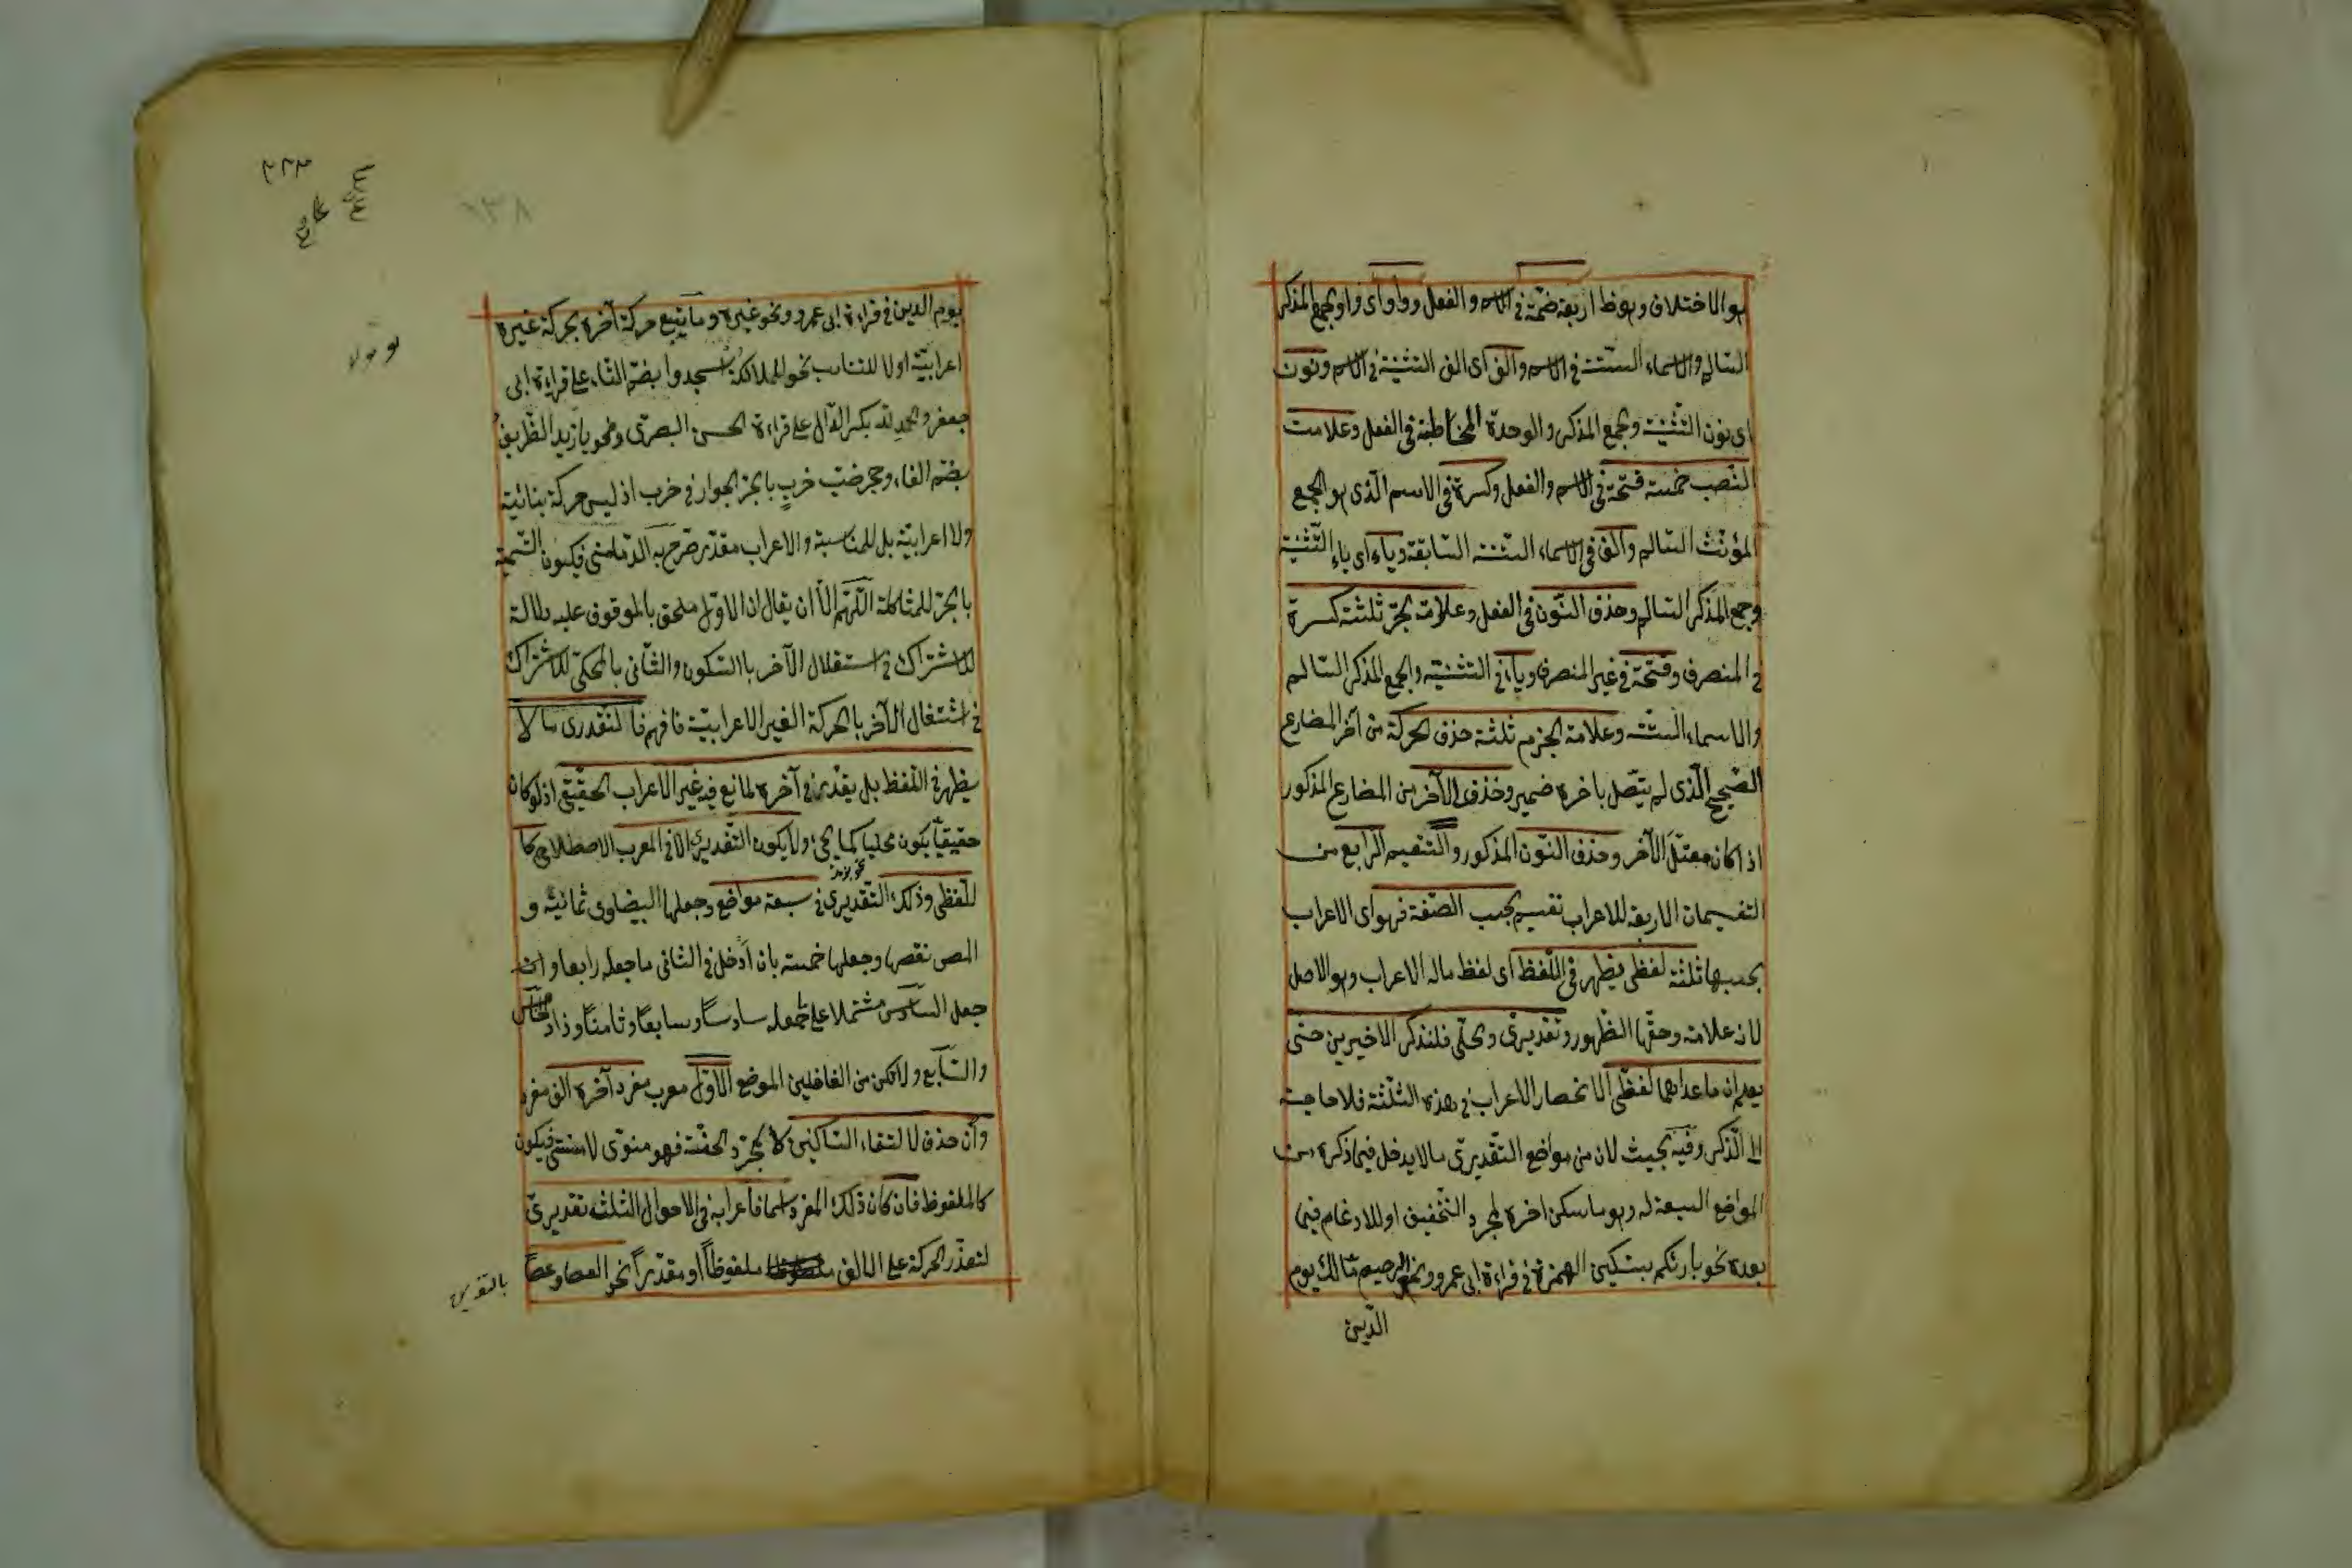 هو الاختلاف وهو ظ اربعة ضمة في الاسم والفعل وواو اى واو الجمع المذكر
السالم والاسماء الستة في الاسم والف اى الف التثنية في الاسم ونون
اى نون التثنية وجمع المذكر والوحدة المخاطبة في الفعل وعلامت
النّصب خمسة فتحة في الاسم والفعل وكسرة في الاسم الّذى هو الجمع
المؤنّث السالم والف في الاسماء الستة السّابقة وياء اى ياء التّثنية
وجمع المذكر السالم وحذف النّون في الفعل وعلامة الجرّ ثلثة كسرة
في المنصرف وفتحة في غير المنصرف وياء في التثنية والجمع المذكر السالم
والاسماء الستة وعلامة الجزم ثلثة حذف الحركة من آخر المضارع
الصّحيح الّذى لم يتّصل باخره ضمير وحذف الآخر من المضارع المذكور
اذا كان معتلّ الآخر وحذف النّون المذكور والتّقسيم الرابع من
التقسيمات الاربعة للاعراب تقسيم بحسب الصّفة فهو اى الاعراب
بحسبها ثلثة لفظى يظهر في اللّفظ اى لفظ ماله الاعراب وهو الاصل
لانه علامة وحقّها الظّهور وتقديرىّ ومحلّى فلنذكر الاخيرين حتى
يعلم ان ما عداهما لفظىّ لانحصار الاعراب في هذه الثلثة فلا حاجة
الى الذّكر وفيه بحيث لان من مواضع التّقديرىّ ما لا يدخل فيما ذكره من
المواضع السبعة له وهو ما سكن اخره لمجرد التّخفيف او للادغام فيما
بعده نحو بارئكم بتسكين الهمزة في قراءة ابى عمرو ونحو الرحيم مّالك يوم
الدّين
يوم الدين في قراءة ابى عمرو ونحو غيره وما يتبع حركة آخره بحركة غيره
اعرابيّة اولا للتناسب نحو للملائكةُ اسجدوا بضم التاء على قراءة ابى
جعفر والحمدِ لله بكسر الدّال على قراءة الحسن البصرى ونحو يا زيد الظّريفُ
بضم الفاء وجحر ضبّ خربٍ بالجرّ الجوار في خرب اذ ليس حركة بنائية
ولا اعرابيّة بل للمناسبة والاعراب مقدّر صرّح به الدّمامنى فيكون التّسمية
بالجرّ للمشاكلة اللّهم الّا ان يقال ان الاوّل ملحق بالموقوف عليه
للاشتراك في استقلال الآخر بالسّكون والثّانى بالمحكىّ للاشتراك
في اشتغال الآخر بالحركة الغير الاعرابيّة فافهم فالتّقدرى ما لا
يظهر في اللّفظ بل يقدّر في آخره لمانع فيه غير الاعراب الحقيقى اذ لو كان
حقيقيّا يكون محليا كما يجئ ولا يكون التّقديرىّ الا في المعرب الاصطلاحى كا
للّفظى وذلك التّقديرى في سبعة مواضع وجعلها البيضاوى ثمانية و
المص نقصها وجعلها خمسة بان أدخل في الثانى ما جعله رابعا وان
جعل السّادس مشتملا على ما جعله سادسًا وسابعًا وثامنًا وزاد الخامس
والسّابع ولا تكن من الغافلين الموضع الاوّل معرب مفرد آخره الف مفرد
وان حذف لالتقاء السّاكنين لا لمجرّد الخفّة فهو منوىّ لا منسىّ فيكون
كالملفوظ فان كان ذلك المفرد اسما فاعرابه في الاحوال الثلثة تقديرىّ
لتعذّر الحركة على الالف ملفوظاً او مقدّراً نحو العصا وعصاً
بالتنوين
٢٣٣
١٣٨